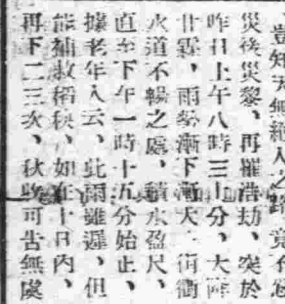 豈知天無絕人之路、竟不忍
災後災黎、再罹浩劫、突於
昨日上午八時三十分、大降
甘霖、雨勢漸下漸大、街衢
水道不暢之處、積水盈尺、
直至下午一時十五分始止、
據老年人云、此雨雖遲、但
能補救稻秧、如在十日內、
再下二三次、秋收可告無虞